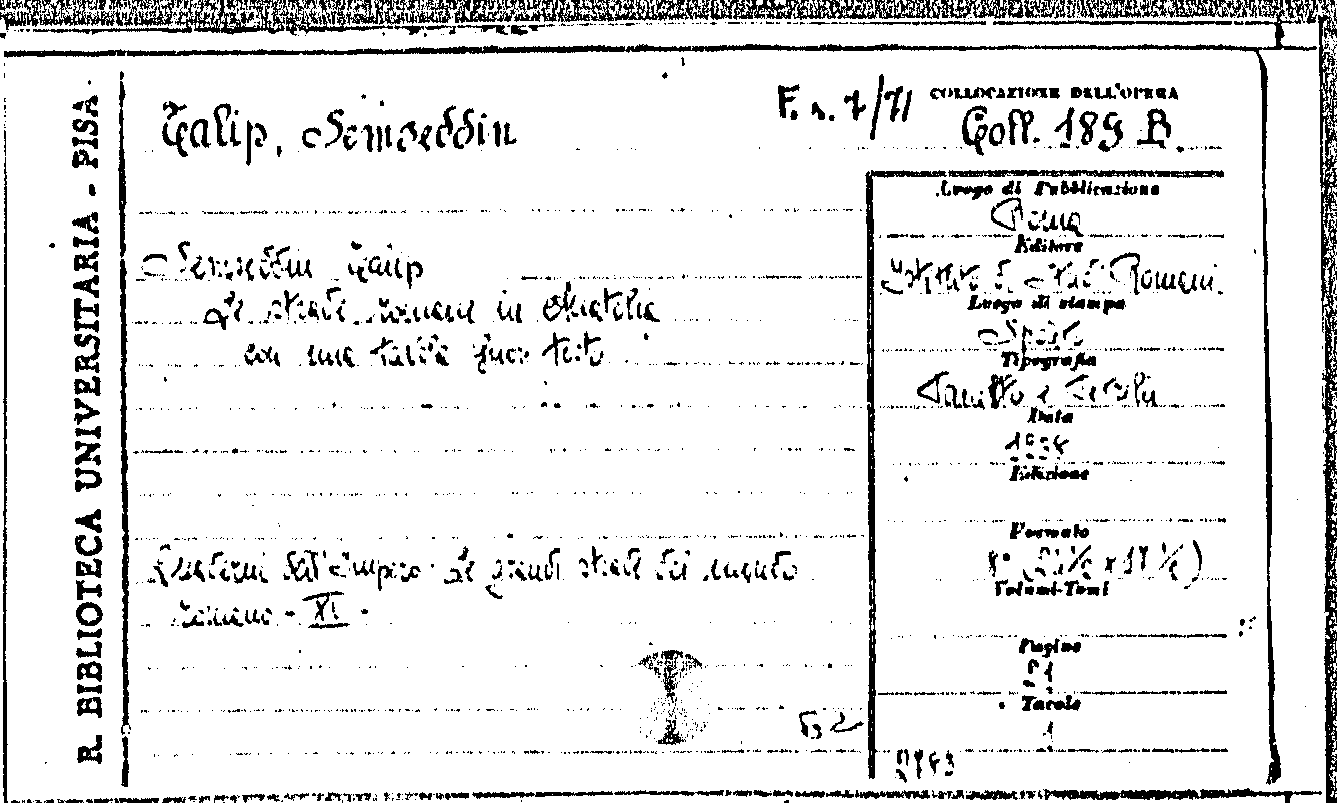 R. BIBLIOTECA UNIVERSITARIA - PISA.
Talip, Semseddin
F. n. 7/71
COLLOCAZIONE DELL'OPERA
Coll. 189 B.
Semseddin Talip
Le strade romane in Anatolia
con una tavola fuor testo
Quaderni dell'Impero - Le grandi strade del mondo
romano - XI -
Luogo di Pubblicazione
Roma
Editore
Istituto di Studi Romani
Luogo di stampa
Spoleto
Tipografia
Panetto e Petrelli
Data
Edizione
Formato
8°
Volumi-Tomi
Pagine
21
Tavole
1